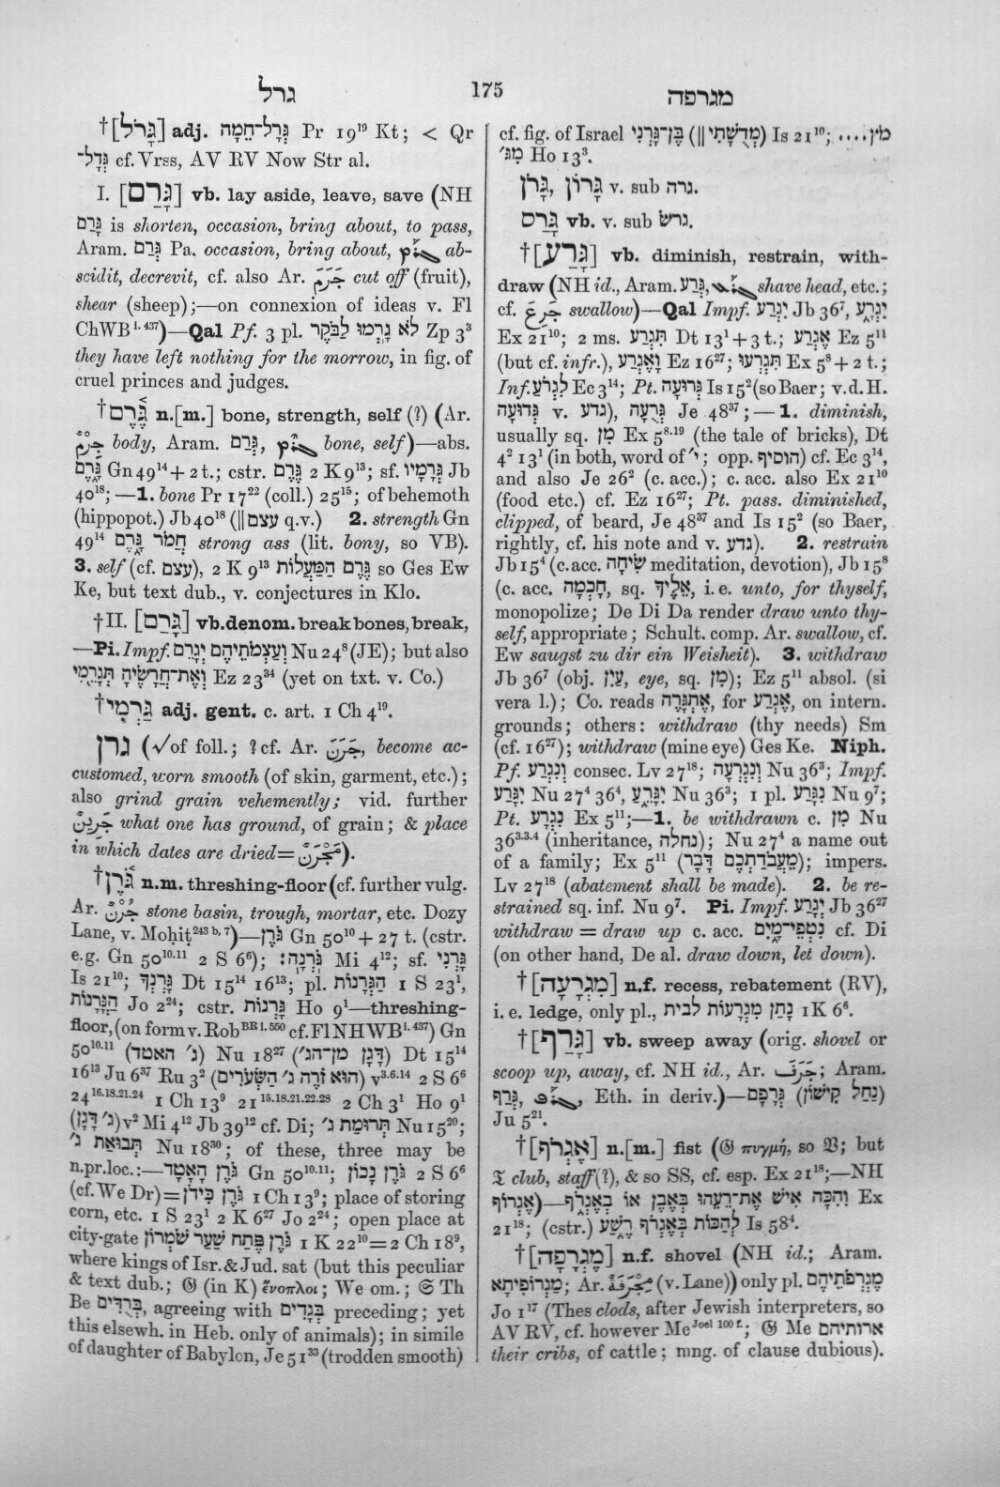 גרל
175
מגרפה
†[גָּרֹל] adj. גְּרָל־חֵמָה Pr 19¹⁹ Kt; < Qr
גְּדָל־ cf. Vrss, AV RV Now Str al.
I. [גָּרַם] vb. lay aside, leave, save (NH
גָּרַם is shorten, occasion, bring about, to pass,
Aram. גְּרַם Pa. occasion, bring about, ab-
scidit, decrevit, cf. also Ar. جَرَمَ cut off (fruit),
shear (sheep);—on connexion of ideas v. Fl
ChWB i. 437)—Qal Pf. 3 pl. לֹא גָֽרְמוּ לַבֹּקֶר Zp 3³
they have left nothing for the morrow, in fig. of
cruel princes and judges.
†גֶּ֫רֶם n.[m.] bone, strength, self (?) (Ar.
جِرْمٌ body, Aram. גְּרַם, bone, self)—abs.
גָּ֑רֶם Gn 49¹⁴ + 2 t.; cstr. גֶּרֶם 2 K 9¹³; sf. גְּרָמָיו Jb
40¹⁸;—1. bone Pr 17²² (coll.) 25¹⁵; of behemoth
(hippopot.) Jb 40¹⁸ (‖ עצם q.v.) 2. strength Gn
49¹⁴ חֲמֹר גָּ֑רֶם strong ass (lit. bony, so VB).
3. self (cf. עצם), 2 K 9¹³ גֶּרֶם הַמַּעֲלוֹת so Ges Ew
Ke, but text dub., v. conjectures in Klo.
†II. [גָּרַם] vb. denom. break bones, break,
—Pi. Impf. וְעַצְמֹתֵיהֶם יְגָרֵם Nu 24⁸ (JE); but also
וְאֶת־חֲרָשֶׂיהָ תְּגָרֵ֑מִי Ez 23³⁴ (yet on txt. v. Co.)
†גַּרְמִי adj. gent. c. art. 1 Ch 4¹⁹.
גרן (√ of foll.; ? cf. Ar. جَرَنَ, become ac-
customed, worn smooth (of skin, garment, etc.);
also grind grain vehemently; vid. further
جَرِينٌ what one has ground, of grain; & place
in which dates are dried = مَجْرَنٌ).
†גֹּ֫רֶן n.m. threshing-floor (cf. further vulg.
Ar. جُرْنٌ stone basin, trough, mortar, etc. Dozy
Lane, v. Moḥiṭ 243 b, 7)—גֹּרֶן Gn 50¹⁰ + 27 t. (cstr.
e.g. Gn 50¹⁰·¹¹ 2 S 6⁶); גֹּ֫רְנָה Mi 4¹²; sf. גָּרְנִי
Is 21¹⁰; גָּרְנְךָ Dt 15¹⁴ 16¹³; pl. הַגֳּרָנוֹת 1 S 23¹,
הַגֳּרָנוֹת Jo 2²⁴; cstr. גָּרְנוֹת Ho 9¹—threshing-
floor, (on form v. Rob BR i. 550 cf. Fl NHWB i. 437) Gn
50¹⁰·¹¹ (ג׳ האטד) Nu 18²⁷ (דָּגָן מן־הג׳) Dt 15¹⁴
16¹³ Ju 6³⁷ Ru 3² (הוּא זֹרֶה ג׳ הַשְּׂעֹרִים) v³·⁶·¹⁴ 2 S 6⁶
24¹⁶·¹⁸·²¹·²⁴ 1 Ch 13⁹ 21¹⁵·¹⁸·²¹·²²·²⁸ 2 Ch 3¹ Ho 9¹
(ג׳ דָּגָן) v² Mi 4¹² Jb 39¹² cf. Di; תְּרוּמַת ג׳ Nu 15²⁰;
תְּבוּאַת ג׳ Nu 18³⁰; of these, three may be
n.pr.loc.:—גֹּרֶן הָאָטָד Gn 50¹⁰·¹¹; גֹּרֶן נָכוֹן 2 S 6⁶
(cf. We Dr) = גֹּרֶן כִּידֹן 1 Ch 13⁹; place of storing
corn, etc. 1 S 23¹ 2 K 6²⁷ Jo 2²⁴; open place at
city-gate גֹּרֶן פֶּתַח שַׁעַר שֹׁמְרוֹן 1 K 22¹⁰ = 2 Ch 18⁹,
where kings of Isr. & Jud. sat (but this peculiar
& text dub.; 𝔊 (in K) ἔνοπλοι; We om.; 𝔖 Th
Be בְּרֻדִּים, agreeing with בְּגָדִים preceding; yet
this elsewh. in Heb. only of animals); in simile
of daughter of Babylon, Je 51³³ (trodden smooth)
cf. fig. of Israel בֶּן־גָּרְנִי (‖ מְדֻשָׁתִי) Is 21¹⁰; מֹץ....
מִגּ׳ Ho 13³.
גָּרוֹן, גָּרֹן v. sub גרה.
גָּרַס vb. v. sub גרשׂ.
†[גָּרַע] vb. diminish, restrain, with-
draw (NH id., Aram. גְּרַע, shave head, etc.;
cf. جَرِعَ swallow)—Qal Impf. יִגְרַע Jb 36⁷, יִגְרָ֑ע
Ex 21¹⁰; 2 ms. תִּגְרַע Dt 13¹ + 3 t.; אֶגְרַע Ez 5¹¹
(but cf. infr.), וָאֶגְרַע Ez 16²⁷; תִּגְרְעוּ Ex 5⁸ + 2 t.;
Inf. לִגְרֹעַ Ec 3¹⁴; Pt. גְּרוּעָה Is 15² (so Baer; v. d. H.
גְּדוּעָה v. גדע), גְּרֻעָה Je 48³⁷;—1. diminish,
usually sq. מִן Ex 5⁸·¹⁹ (the tale of bricks), Dt
4² 13¹ (in both, word of י׳; opp. הוסיף) cf. Ec 3¹⁴,
and also Je 26² (c. acc.); c. acc. also Ex 21¹⁰
(food etc.) cf. Ez 16²⁷; Pt. pass. diminished,
clipped, of beard, Je 48³⁷ and Is 15² (so Baer,
rightly, cf. his note and v. גדע). 2. restrain
Jb 15⁴ (c. acc. שִׂיחָה meditation, devotion), Jb 15⁸
(c. acc. חָכְמָה, sq. אֵלֶיךָ, i.e. unto, for thyself,
monopolize; De Di Da render draw unto thy-
self, appropriate; Schult. comp. Ar. swallow, cf.
Ew saugst zu dir ein Weisheit). 3. withdraw
Jb 36⁷ (obj. עַיִן, eye, sq. מִן); Ez 5¹¹ absol. (si
vera l.); Co. reads אֶתְגָּרֶה, for אֶגְרַע, on intern.
grounds; others: withdraw (thy needs) Sm
(cf. 16²⁷); withdraw (mine eye) Ges Ke. Niph.
Pf. וְנִגְרַע consec. Lv 27¹⁸; וְנִגְרְעָה Nu 36³; Impf.
יִגָּרַע Nu 27⁴ 36⁴, יִגָּרֵ֑עַ Nu 36³; 1 pl. נִגָּרַע Nu 9⁷;
Pt. נִגְרָע Ex 5¹¹;—1. be withdrawn c. מִן Nu
36³·³·⁴ (inheritance, נחלה); Nu 27⁴ a name out
of a family; Ex 5¹¹ (מֵעֲבֹדַתְכֶם דָּבָר); impers.
Lv 27¹⁸ (abatement shall be made). 2. be re-
strained sq. inf. Nu 9⁷. Pi. Impf. יְגָרַע Jb 36²⁷
withdraw = draw up c. acc. נִטְפֵי־מָיִם cf. Di
(on other hand, De al. draw down, let down).
†[מִגְרָעָה] n.f. recess, rebatement (RV),
i.e. ledge, only pl., נָתַן מִגְרָעוֹת לבית 1 K 6⁶.
†[גָּרַף] vb. sweep away (orig. shovel or
scoop up, away, cf. NH id., Ar. جَرَفَ; Aram.
גְּרַף, Eth. in deriv.)—גְּרָפָם (נַחַל קִישׁוֹן)
Ju 5²¹.
†[אֶגְרֹף] n.[m.] fist (𝔊 πυγμή, so 𝔙; but
𝔗 club, staff (?), & so SS, cf. esp. Ex 21¹⁸;—NH
אֶגְרוֹף)—וְהִכָּה אִישׁ אֶת־רֵעֵהוּ בְּאֶבֶן אוֹ בְאֶגְרֹף Ex
21¹⁸; (cstr.) לְהַכּוֹת בְּאֶגְרֹף רֶשַׁע Is 58⁴.
†[מֶגְרָפָה] n.f. shovel (NH id.; Aram.
מַגְרוֹפִיתָא; Ar. مِجْرَفَةٌ (v. Lane)) only pl. מֶגְרְפֹתֵיהֶם
Jo 1¹⁷ (Thes clods, after Jewish interpreters, so
AV RV, cf. however Me Joel 100 f.; 𝔊 Me ארותיהם
their cribs, of cattle; mng. of clause dubious).